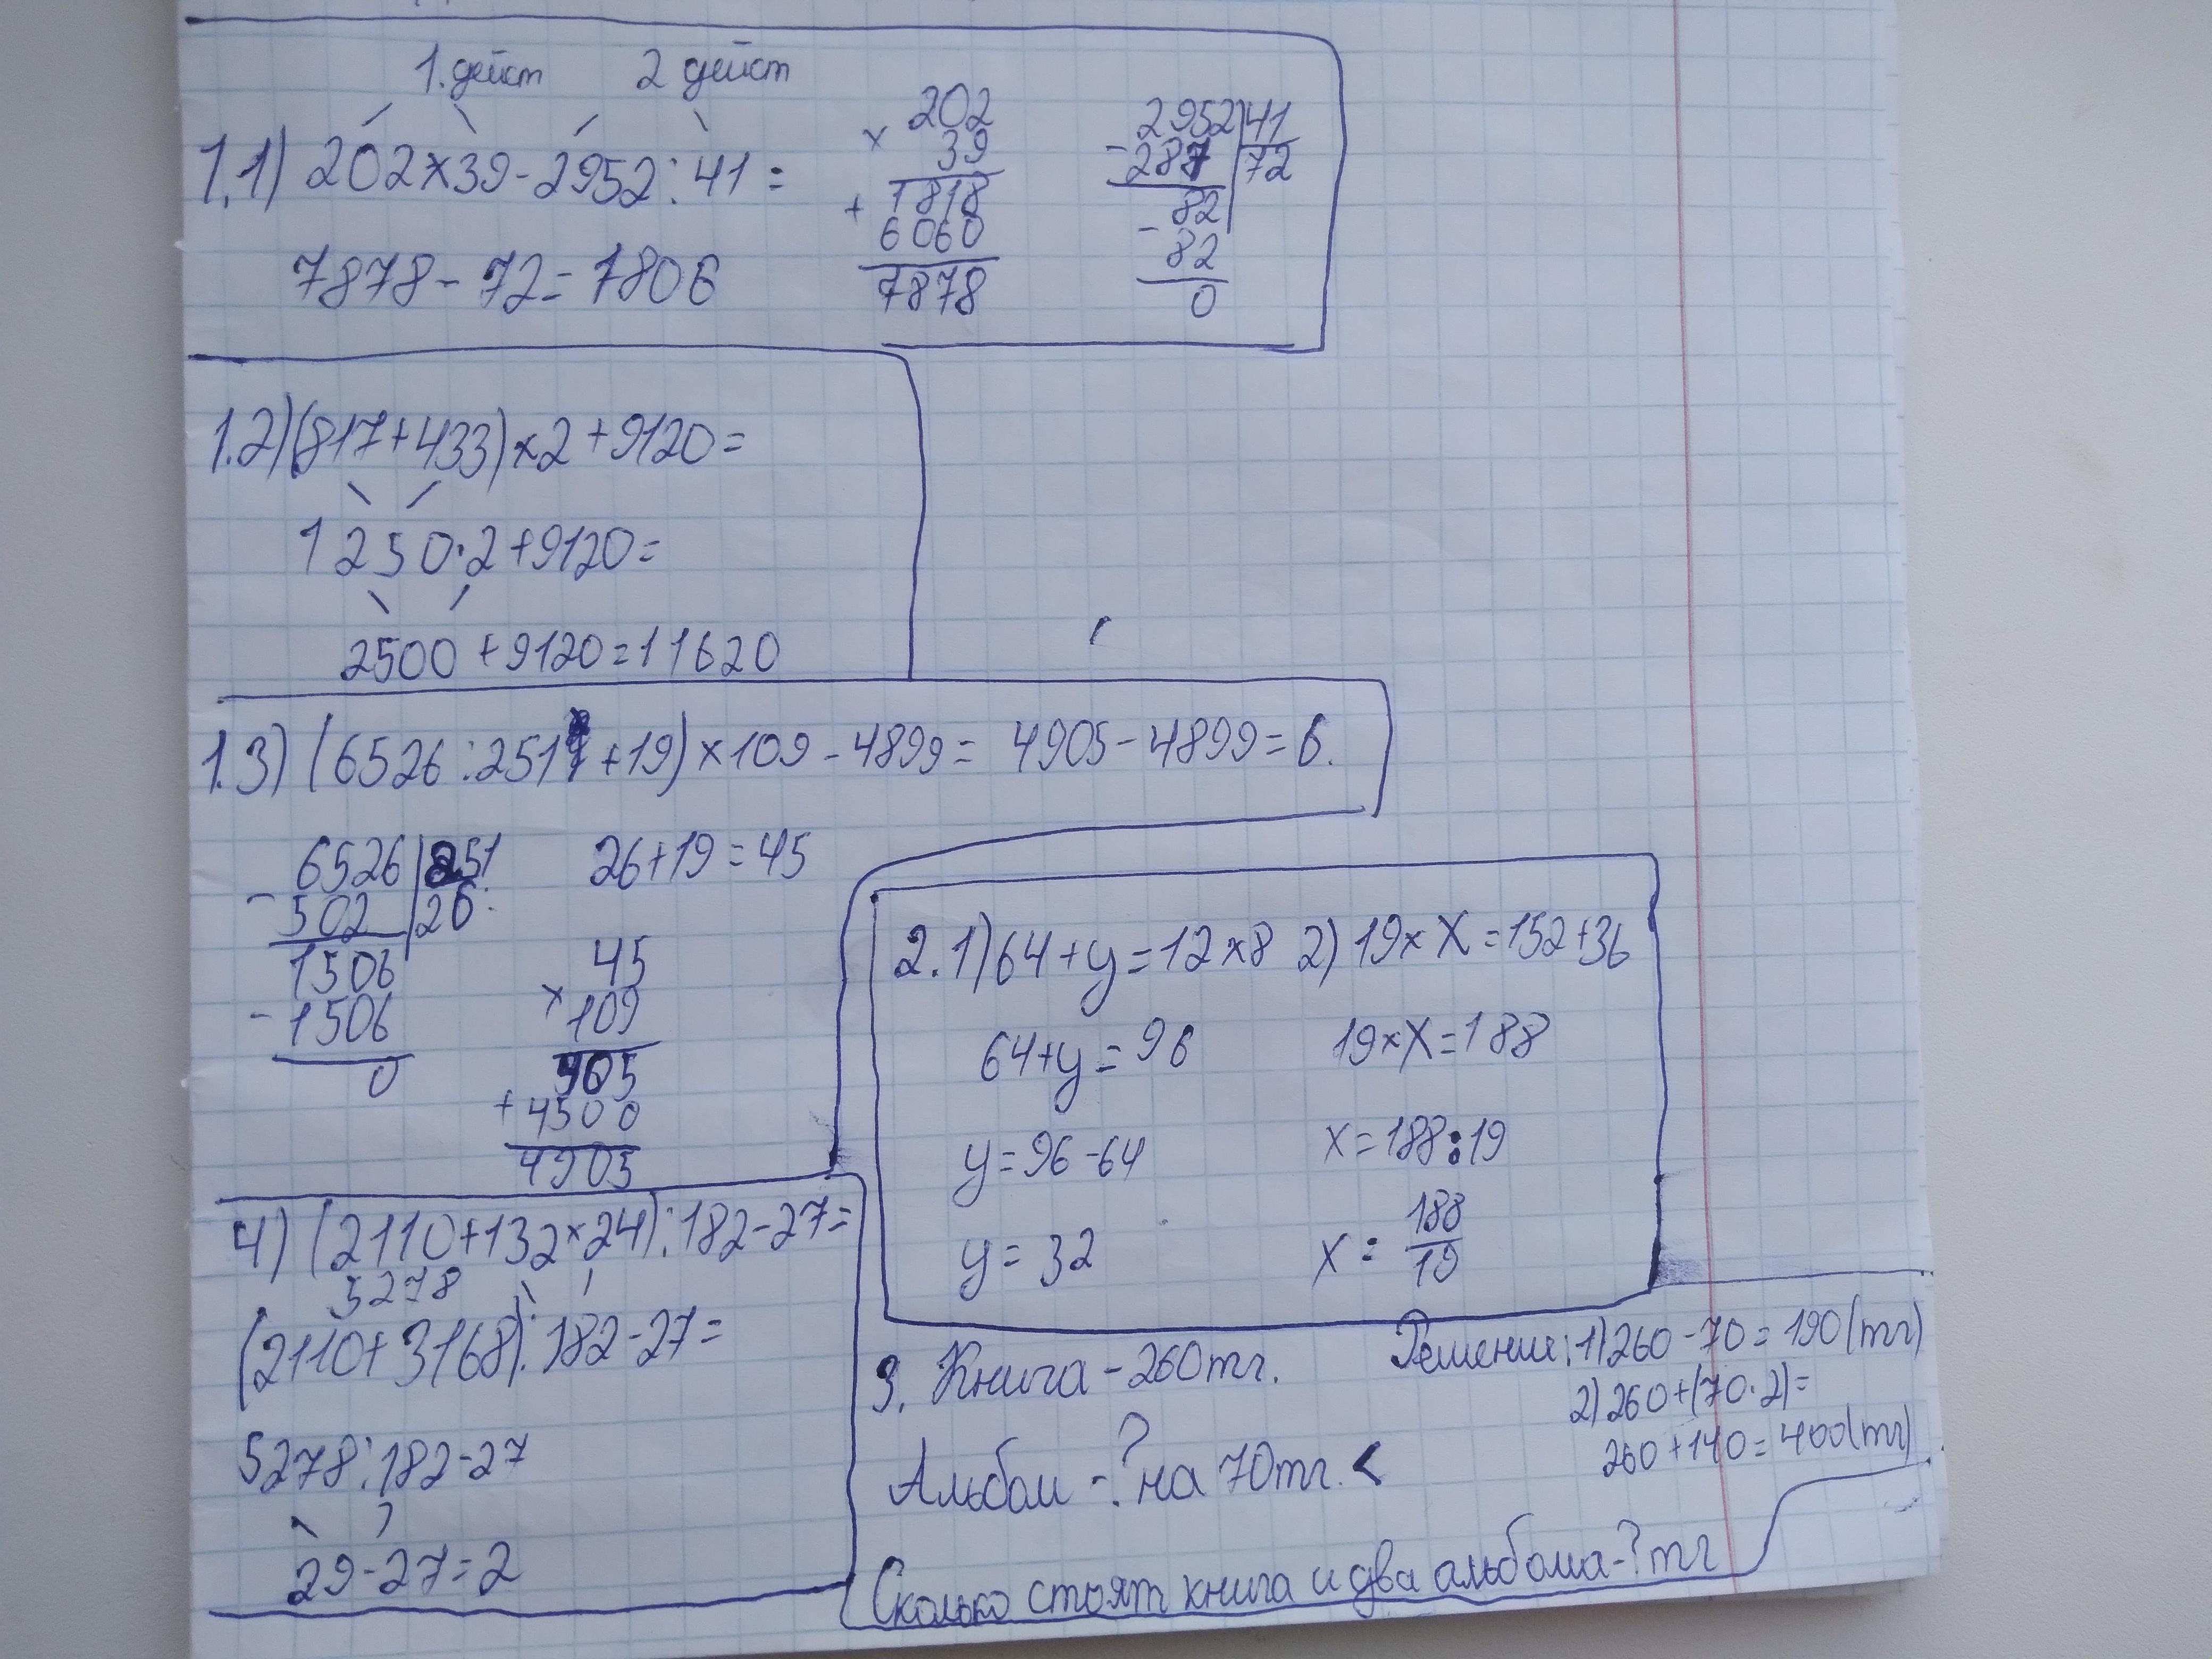 1.дейст 2 дейст
1.1) 202×39-2952:41=
7878-72=7806
202
× 39
1818
+ 6060
7878
2952|41
- 287 72
82
- 82
0
1.2)(817+433)×2+9120=
1250·2+9120=
2500+9120=11620
1.3) (6526:251+19)×109-4899= 4905-4899=6.
6526|251
- 502 26
1506
- 1506
0
26+19=45
45
× 109
405
+ 4500
4905
4) (2110+132×24):182-27=
5278
(2110+3168):182-27=
5278:182-27
29-27=2
2.1)64+y=12×8 2) 19×X=152+36
64+y=96 19×X=188
y=96-64 X=188:19
y=32 X=188/19
3. Книга-260тг.
Альбом-? на 70тг. <
?
Сколько стоят книга и два альбома-?тг
Решение:1)260-70=190(тг)
2)260+(70·2)=
260+140=400(тг)